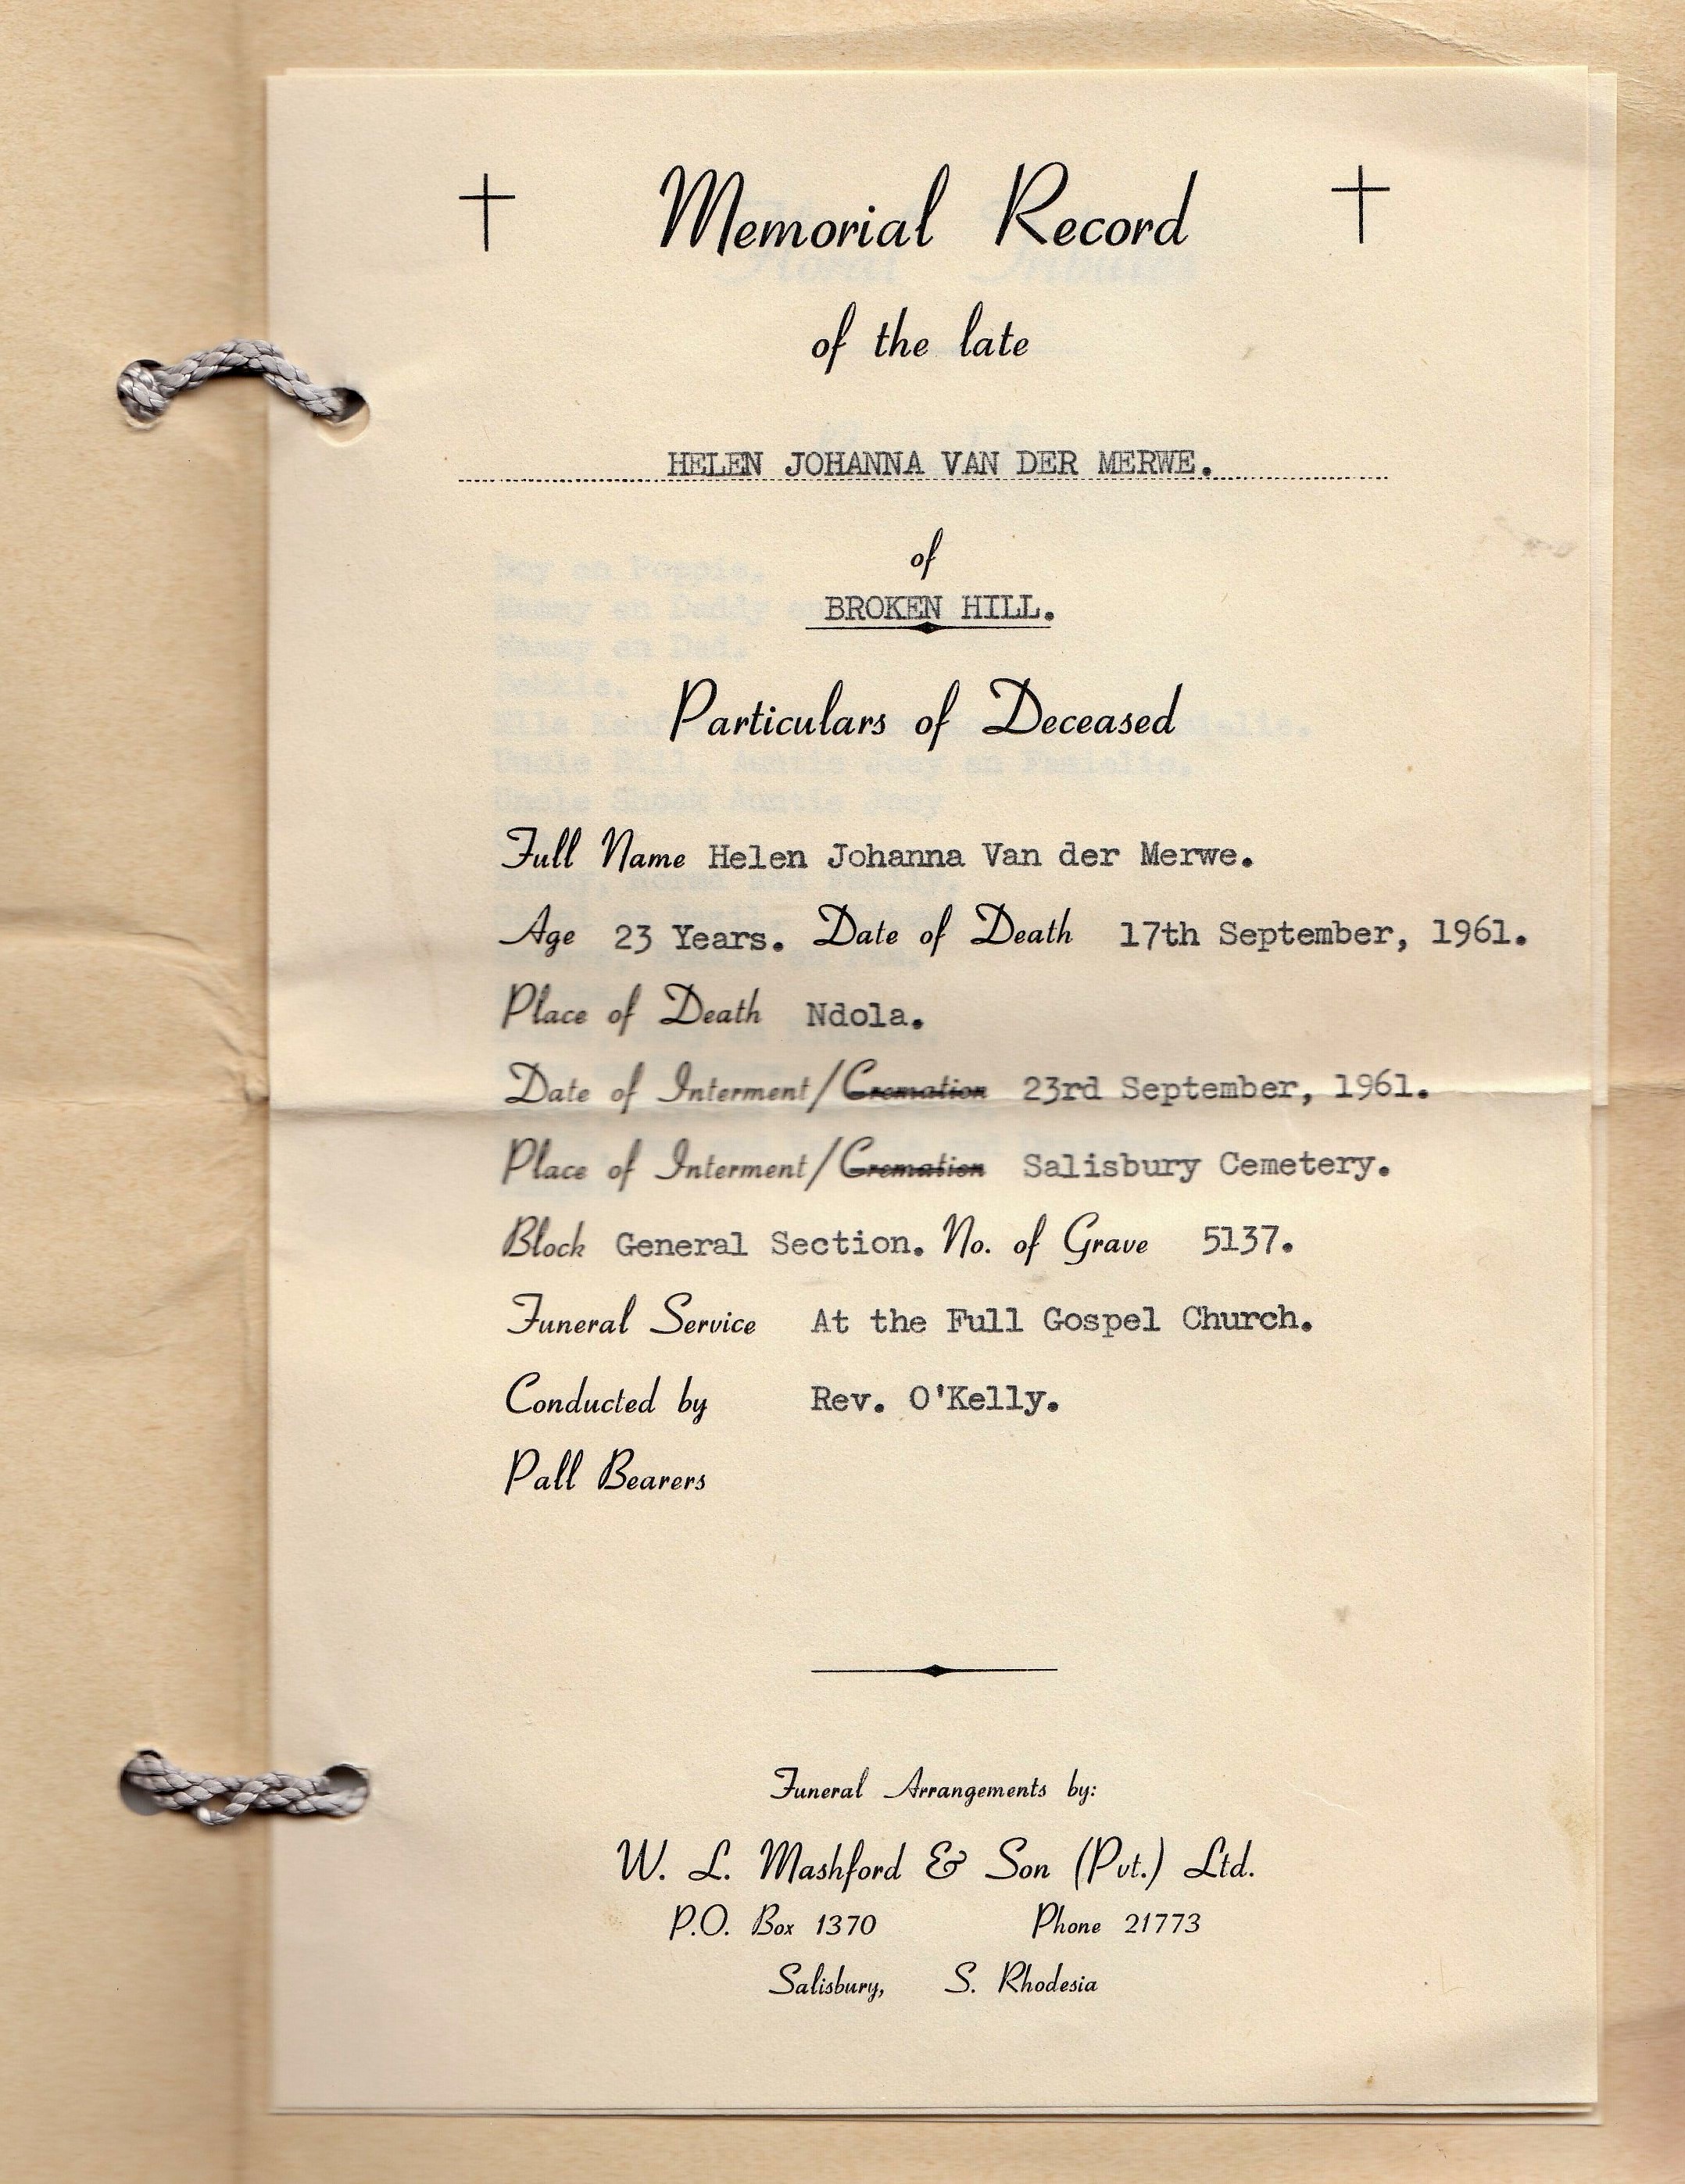 Memorial Record
of the late
HELEN JOHANNA VAN DER MERWE.
of
BROKEN HILL.
Particulars of Deceased
Full Name Helen Johanna Van der Merwe.
Age 23 Years. Date of Death 17th September, 1961.
Place of Death Ndola.
Date of Interment/Cremation 23rd September, 1961.
Place of Interment/Cremation Salisbury Cemetery.
Block General Section. No. of Grave 5137.
Funeral Service At the Full Gospel Church.
Conducted by Rev. O'Kelly.
Pall Bearers
Funeral Arrangements by:
W. L. Mashford & Son (Pvt.) Ltd.
P.O. Box 1370 Phone 21773
Salisbury, S. Rhodesia